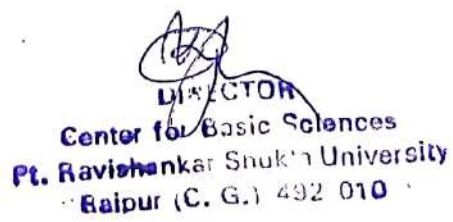 DIRECTOR
Center for Basic Sciences
Pt. Ravishankar Shukla University
Raipur (C. G.) 492 010